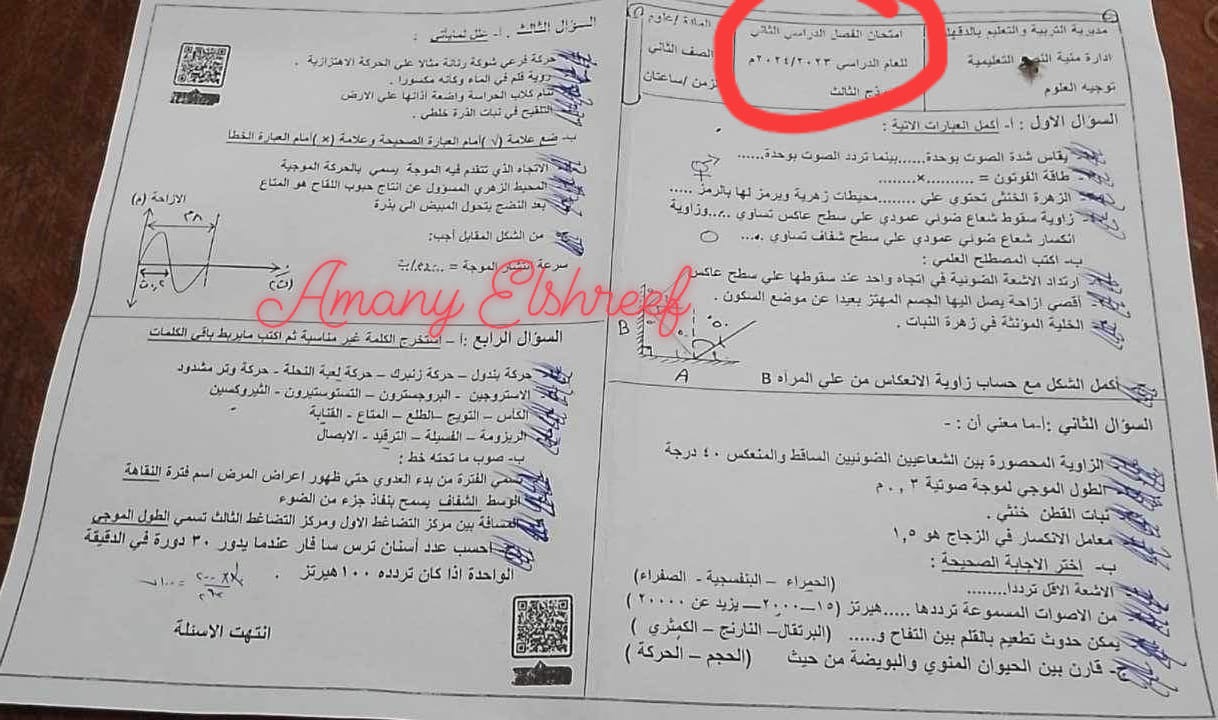 مديرية التربية والتعليم بالدقهلية
ادارة منية النصر التعليمية
توجيه العلوم
امتحان الفصل الدراسي الثاني
للعام الدراسي ٢٠٢٤/٢٠٢٣م
الثالث
المادة /علوم
الصف الثاني
الزمن /ساعتان
السؤال الاول : أ- أكمل العبارات الاتية :
يقاس شدة الصوت بوحدة......بينما تردد الصوت بوحدة......
طاقة الفوتون = ..........×........
الزهرة الخنثى تحتوي علي ........محيطات زهرية ويرمز لها بالرمز .....
زاوية سقوط شعاع ضوئي عمودي علي سطح عاكس تساوي .....وزاوية
انكسار شعاع ضوئي عمودي علي سطح شفاف تساوي ....
ب- اكتب المصطلح العلمي :
ارتداد الاشعة الضوئية في اتجاه واحد عند سقوطها علي سطح عاكس
أقصي إزاحة يصل اليها الجسم المهتز بعيدا عن موضع السكون .
الخلية المؤنثة في زهرة النبات .
B
A
أكمل الشكل مع حساب زاوية الانعكاس من علي المرأه B
السؤال الثاني :أ-ما معني أن : -
الزاوية المحصورة بين الشعاعيين الضوئيين الساقط والمنعكس ٤٠ درجة
الطول الموجي لموجة صوتية ٠,٣ م
نبات القطن خنثي .
معامل الانكسار في الزجاج هو ١,٥
ب- اختر الاجابة الصحيحة :
الاشعة الاقل ترددا........ (الحمراء – البنفسجية - الصفراء)
من الاصوات المسموعة ترددها .....هيرتز (١٥–٢٠٠٠–يزيد عن ٢٠٠٠٠ )
يمكن حدوث تطعيم بالقلم بين التفاح و..... (البرتقال– النارنج – الكمثري )
ج- قارن بين الحيوان المنوي والبويضة من حيث (الحجم – الحركة )
السؤال الثالث . أ- علل لماياتي :
حركة فرعي شوكة رنانة مثالا علي الحركة الاهتزازية .
روية قلم في الماء وكأنه مكسورا .
تنام كلاب الحراسة واضعة أذانها علي الارض
التلقيح في نبات الذرة خلطي .
ب- ضع علامة (√ )أمام العبارة الصحيحة وعلامة (× )أمام العبارة الخطأ
الاتجاه الذي تتقدم فيه الموجة يسمي بالحركة الموجية
المحيط الزهري المسؤول عن انتاج حبوب اللقاح هو المتاع
بعد النضج يتحول المبيض الي بذرة
من الشكل المقابل أجب:
سرعة انتشار الموجة =
الازاحة (م)
Amany Elshreef
السؤال الرابع :أ – استخرج الكلمة غير مناسبة ثم اكتب مايربط باقي الكلمات
حركة بندول – حركة زنبرك – حركة لعبة النحلة - حركة وتر مشدود
الاستروجين - البروجسترون – التستوستيرون - الثيروكسين
الكأس – التويج –الطلع – المتاع - القنابة
الريزومة – الفسيلة – الترقيد - الابصال
ب- صوب ما تحته خط :
تسمي الفترة من بدء العدوي حتي ظهور اعراض المرض اسم فترة النقاهة
الوسط الشفاف يسمح بنفاذ جزء من الضوء
المسافة بين مركز التضاغط الاول ومركز التضاغط الثالث تسمي الطول الموجي
احسب عدد أسنان ترس سا فار عندما يدور ٣٠ دورة في الدقيقة
الواحدة اذا كان تردده ١٠٠هيرتز .
انتهت الاسئلة